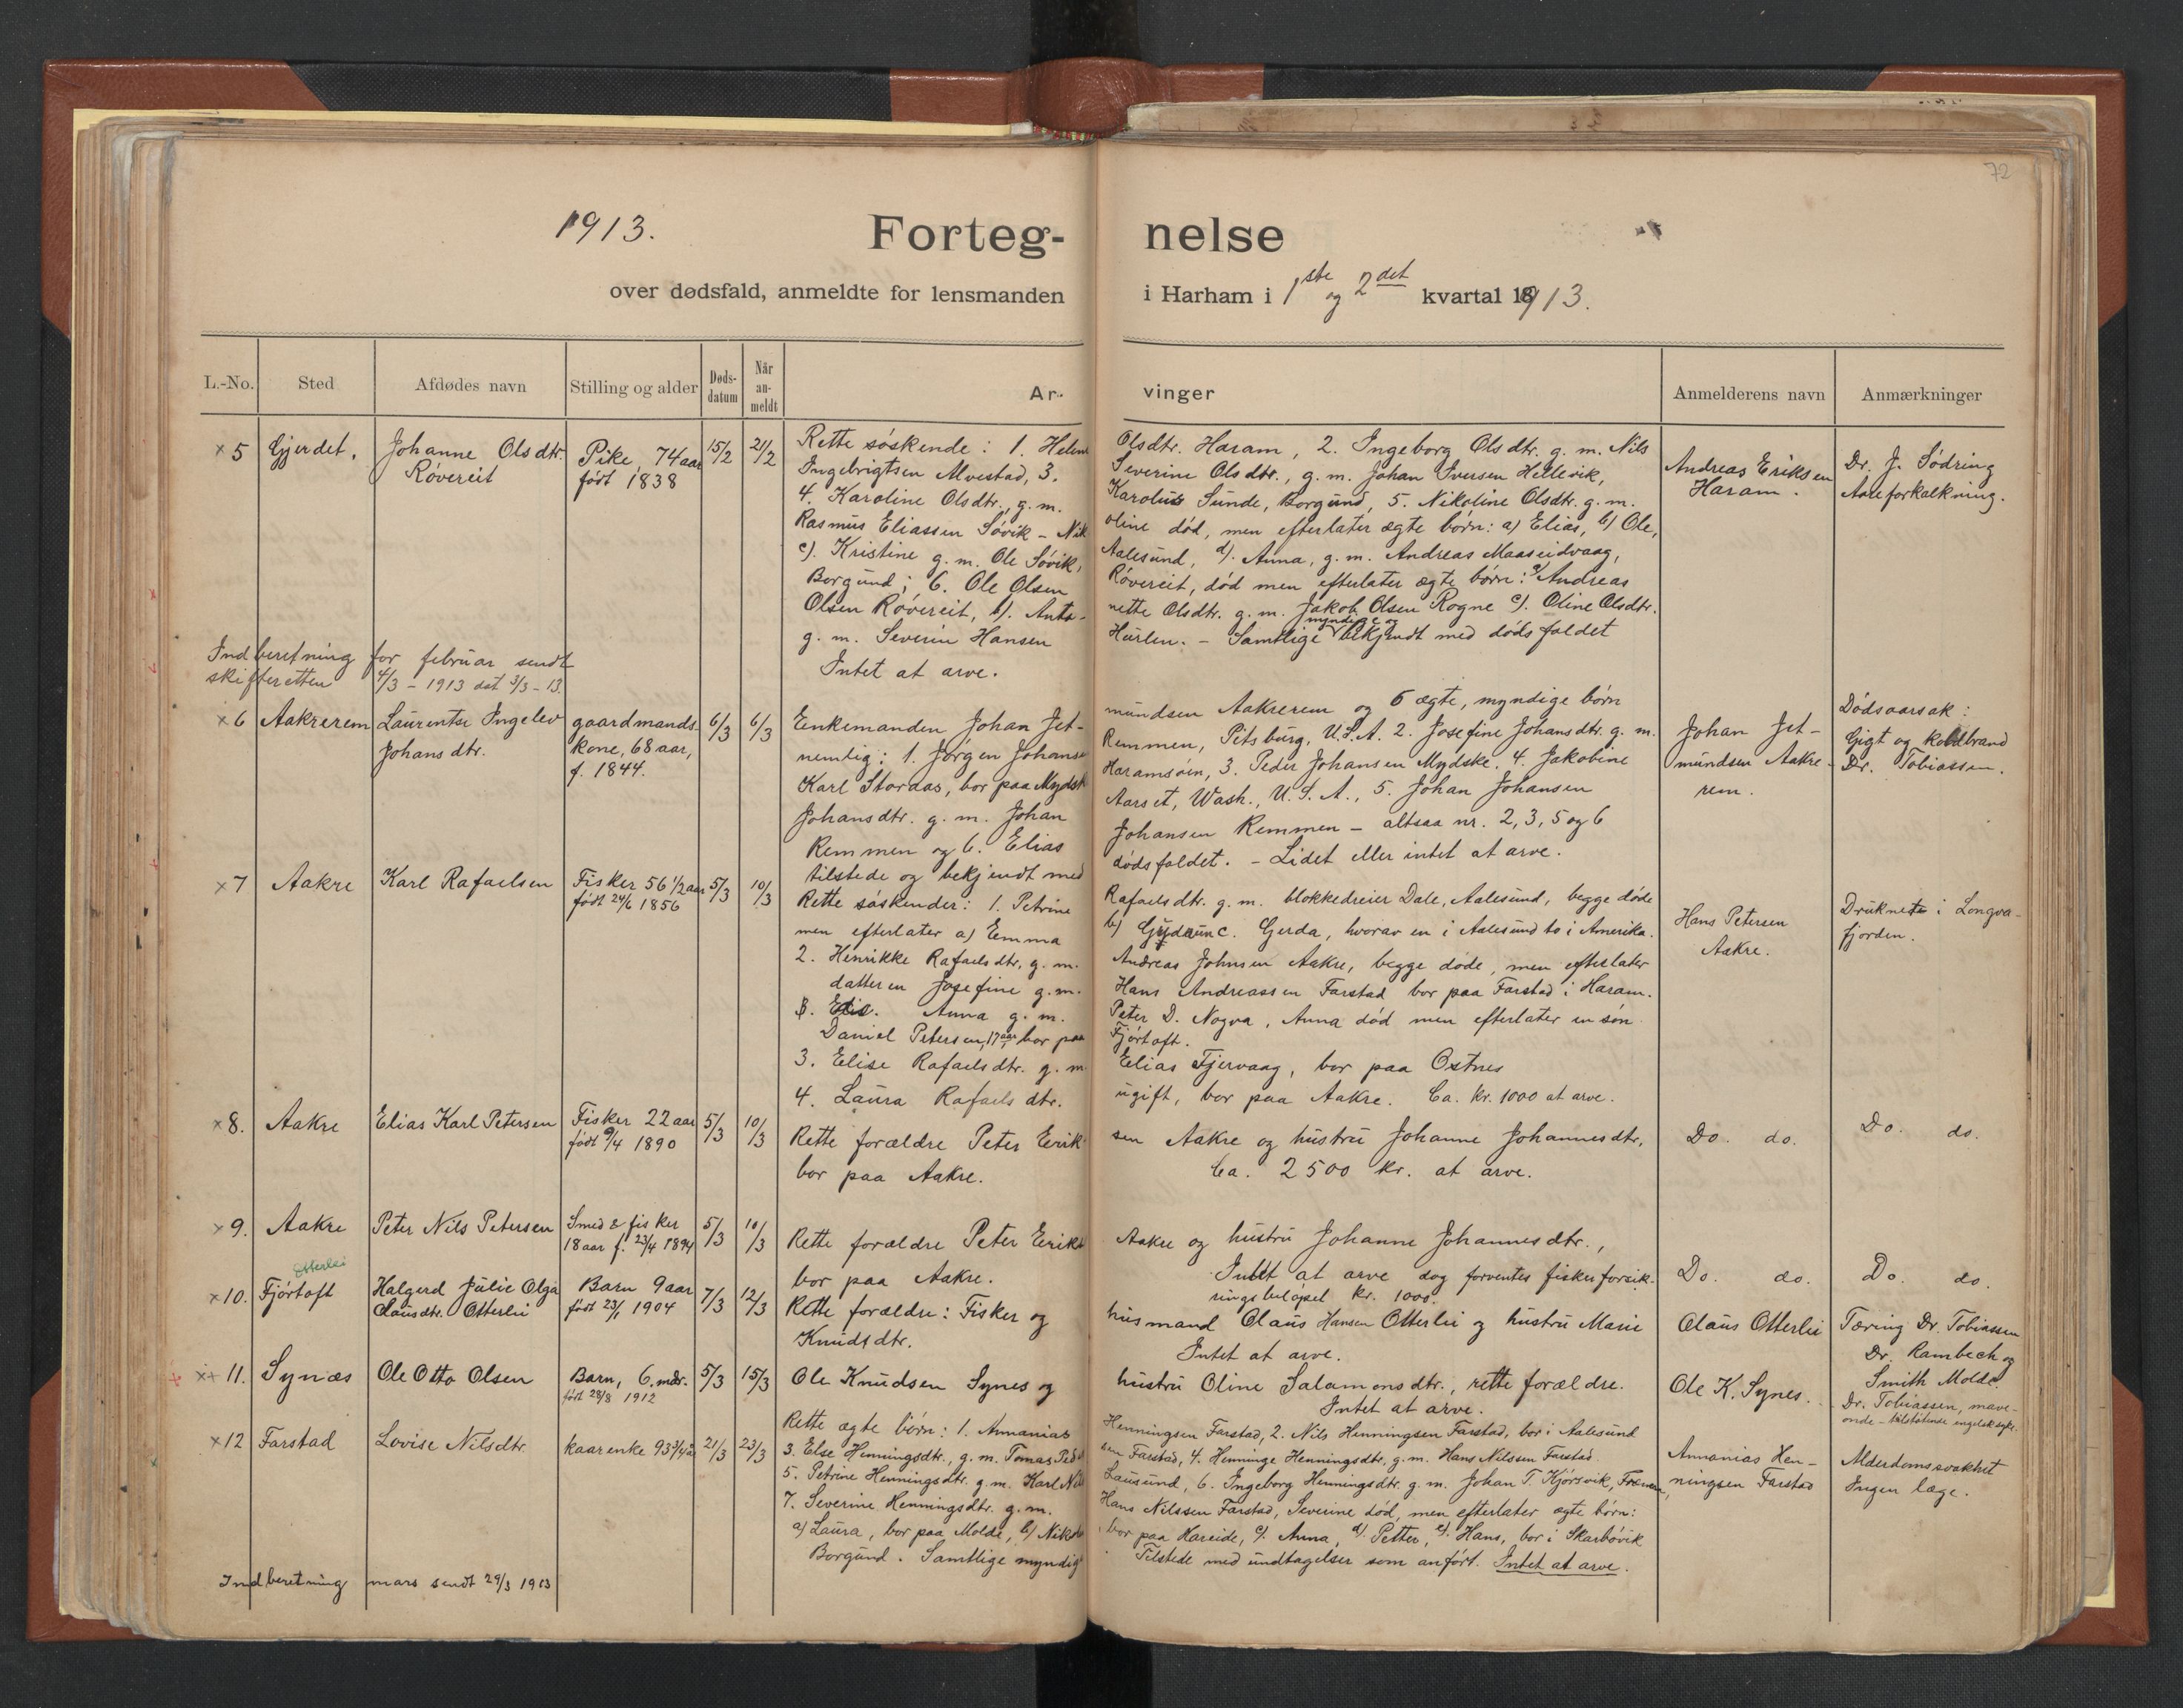 72
1913. Forteg- nelse
over dødsfald, anmeldte for lensmanden i Harham i 1ste og 2det kvartal 1913.
L.-No. Sted Afdødes navn Stilling og alder Døds-datum Når an-meldt Ar- vinger Anmelderens navn Anmærkninger
x 5 Gjerdet. Johanne Olsdtr. Røvereit Pike, 74 aar født 1838 15/2 21/2
Rette søskende: 1. Helene Olsdtr. Haram, 2. Ingeborg Olsdtr. g. m. Nils
Ingebrigtsen Alvestad, 3. Severine Olsdtr., g. m. Johan Iversen Hellevik,
4. Karoline Olsdtr., g. m. Karolus Sunde, Borgund, 5. Nikoline Olsdtr. g. m.
Rasmus Eliassen Søvik - Nikoline død, men efterlater ægte børn: a) Elias, b) Ole,
c). Kristine g. m. Ole Søvik, Aalesund, d). Anna, g. m. Andreas Maaseidvaag,
Borgund; 6. Ole Olsen Røvereit, død men efterlater ægte børn: a) Andreas
Olsen Røvereit, b). Antonette Olsdtr. g. m. Jakob Olsen Rogne c). Oline Olsdtr.
g. m. Severin Hansen Hurlen. - Samtlige myndige og bekjendt med dødsfaldet
Intet at arve.
Andreas Eriksen
Haram.
Dr. J. Södring
Aareforkalkning.
Indberetning for februar sendt
skifteretten 4/3 - 1913 dat 3/3 - 13.
x 6 Aakrerem Laurentse Ingelev Johansdtr. gaardmands-kone, 68 aar, f. 1844. 6/3 6/3
Enkemanden Johan Jetmundsen Aakrerem og 6 ægte, myndige børn
nemlig: 1. Jørgen Johansen Remmen, Pitsburg, U.S.A. 2. Josefine Johansdtr. g. m.
Karl Stordas, bor paa Mydsk Haramsøen, 3. Peder Johansen Mydske, 4. Jakobine
Johansdtr. g. m. Johan Aarset, Wash., U.S.A., 5. Johan Johansen
Remmen og 6. Elias Johansen Remmen - altsaa nr. 2, 3, 5 og 6
tilstede og bekjendt med dødsfaldet. - Lidet eller intet at arve.
Johan Jet-
mundsen Aakre-
rem.
Dødsaarsak:
Gigt og koldbrand
Dr. Tobiassen.
x 7 Aakre Karl Rafaelsen Fisker 56 1/2 aar født 24/6 1856 5/3 10/3
Rette søskender: 1. Petrine Rafaelsdtr. g. m. blokkedreier Dale, Aalesund, begge døde
men efterlater a) Emma b) Gudrun c. Gerda, hvorav en i Aalesund to i Amerika.
2. Henrikke Rafaelsdtr, g. m. Andreas Johnsen Aakre, begge døde, men efterlater
datteren Josefine g. m. Hans Andreassen Farstad bor paa Farstad i Haram.
Anna g. m. Peter D. Nogva, Anna død men efterlater en søn
Daniel Petersen, 17 aar, bor paa Fjørtoft.
3. Elise Rafaelsdtr. g. m. Elias Tjervaag, bor paa Ostnes
4. Laura Rafaelsdtr. ugift, bor paa Aakre. Ca. kr. 1000 at arve.
Hans Petersen
Aakre.
Druknet i Longva-
fjorden.
x 8. Aakre Elias Karl Petersen Fisker 22 aar født 9/4 1890 5/3 10/3
Rette forældre Peter Eriksen Aakre og hustru Johanne Johannesdtr,
bor paa Aakre. Ca. 2500 kr. at arve.
Do. do.
Do. do.
x 9. Aakre Peter Nils Petersen Smed & fisker 18 aar f. 23/4 1894 5/3 10/3
Rette forældre Peter Eriks Aakre og hustru Johanne Johannesdtr.,
bor paa Aakre. Intet at arve dog forventes fiskerforsik-
ringsbeløpet kr. 1000.
Do. do.
Do. do.
Otterlei
x 10. Fjørtoft Halgerd Julie Olga Clausdtr. Otterlei Barn 9 aar født 23/1 1904 7/3 12/3
Rette forældre: Fisker og husmand Claus Hansen Otterlei og hustru Marie
Knudsdtr. Intet at arve.
Claus Otterlei
Tæring Dr. Tobiassen
Dr. Rambech og
Smith Molde.
x+ 11. Synæs Ole Otto Olsen Barn, 6. mdr. født 28/8 1912 5/3 15/3
Ole Knudsen Synes og hustru Oline Salamonsdtr., rette forældre.
Intet at arve.
Ole K. Synes.
Dr. Tobiassen, mave-
onde - tilstötende engelsk syke.
x 12 Farstad Lovise Nilsdtr. kaarenke 93 3/4 aar 21/3 23/3
Rette ægte børn: 1. Annanias Henningsen Farstad, 2. Nils Henningsen Farstad, bor i Aalesund
3. Else Henningsdtr., g. m. Tomas Pedersen Farstad, 4. Henninge Henningsdtr, g. m. Hans Nilssen Farstad
5. Petrine Henningsdtr g. m. Karl Nils Lausund, 6. Ingeborg Henningsdtr. g. m. Johan T. Kjørsvik, Frænen,
7. Severine Henningsdtr. g. m. Hans Nilssen Farstad, Severine død, men efterlater ægte børn:
a) Laura, bor paa Molde, b) Nikolai bor paa Hareide, c). Anna, d). Petter, e). Hans, bor i Skarbøvik
Borgund. Samtlige myndige. Tilstede med undtagelser som anført. Intet at arve.
Annanias Hen-
ningsen Farstad
Alderdomssvakhet
Ingen læge.
Indberetning mars sendt 29/3 1913